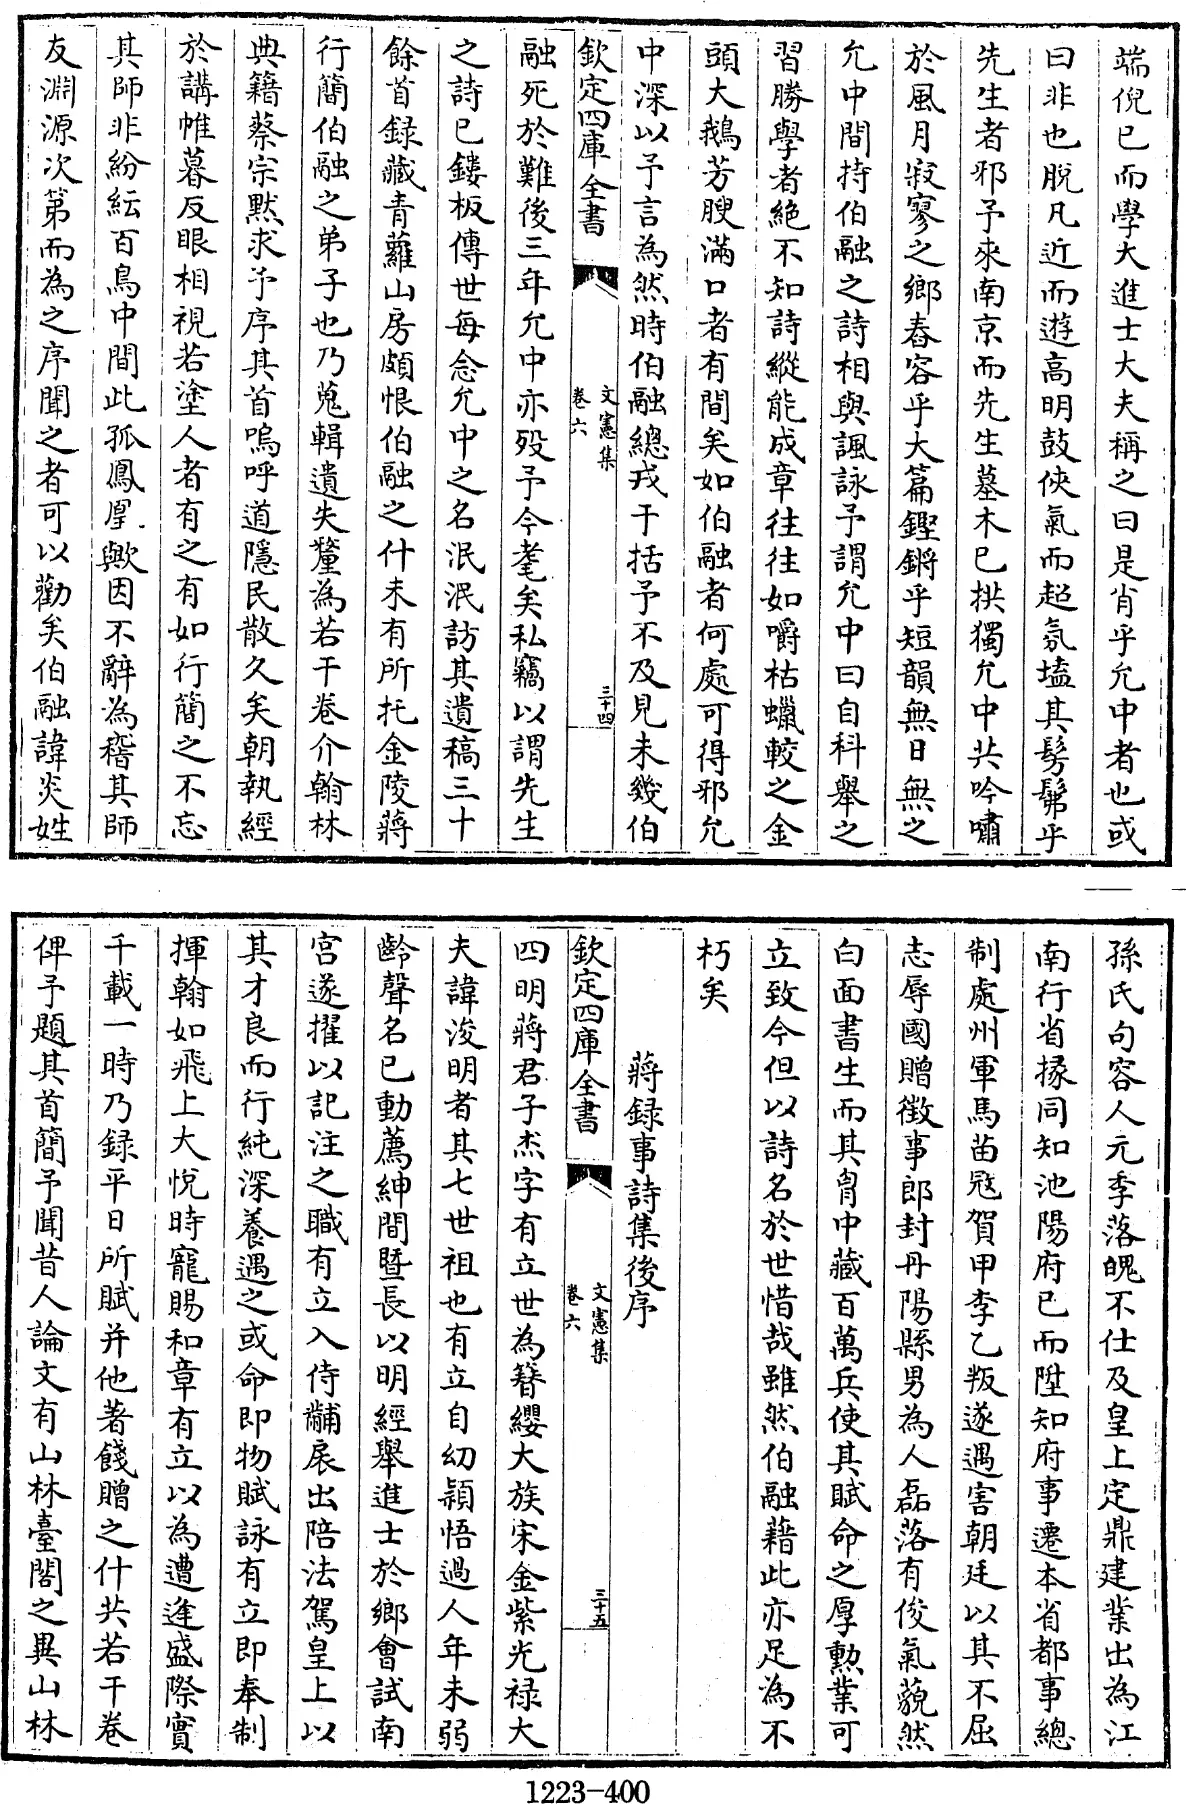 端倪已而學大進士大夫稱之曰是肖乎允中者也或
曰非也脫凡近而遊高明鼓俠氣而超氛壒其髣髴乎
先生者邪予來南京而先生墓木已拱獨允中共吟嘯
於風月寂寥之鄉舂容乎大篇鏗鏘乎短韻無日無之
允中間持伯融之詩相與諷詠予謂允中曰自科舉之
習勝學者絶不知詩縱能成章往往如嚼枯蠟較之金
頭大鵝芳腴滿口者有間矣如伯融者何處可得邪允
中深以予言為然時伯融總戎于括予不及見未幾伯
欽定四庫全書
文憲集
卷六
三十四
融死於難後三年允中亦殁予今耄矣私竊以謂先生
之詩已鏤板傳世每念允中之名泯泯訪其遺稿三十
餘首録藏青蘿山房頗恨伯融之什未有所托金陵蔣
行簡伯融之弟子也乃蒐輯遺失釐為若干卷介翰林
典籍蔡宗默求予序其首嗚呼道隱民散久矣朝執經
於講帷暮反眼相視若塗人者有之有如行簡之不忘
其師非紛紜百鳥中間此孤鳳凰歟因不辭為稽其師
友淵源次第而為之序聞之者可以勸矣伯融諱炎姓
孫氏句容人元季落魄不仕及皇上定鼎建業出為江
南行省掾同知池陽府已而陞知府事遷本省都事總
制處州軍馬苗冦賀甲李乙叛遂遇害朝廷以其不屈
志辱國贈徵事郎封丹陽縣男為人磊落有俊氣藐然
白面書生而其胷中藏百萬兵使其賦命之厚勲業可
立致今但以詩名於世惜哉雖然伯融藉此亦足為不
朽矣
蔣録事詩集後序
欽定四庫全書
文憲集
卷六
三十五
四明蔣君子杰字有立世為簪纓大族宋金紫光禄大
夫諱浚明者其七世祖也有立自幼頴悟過人年未弱
齡聲名已動薦紳間暨長以明經舉進士於鄉會試南
宮遂擢以記注之職有立入侍黼扆出陪法駕皇上以
其才良而行純深養遇之或命即物賦詠有立即奉制
揮翰如飛上大悅時寵賜和章有立以為遭逢盛際實
千載一時乃録平日所賦并他著餞贈之什共若干卷
俾予題其首簡予聞昔人論文有山林臺閣之異山林
1223-400